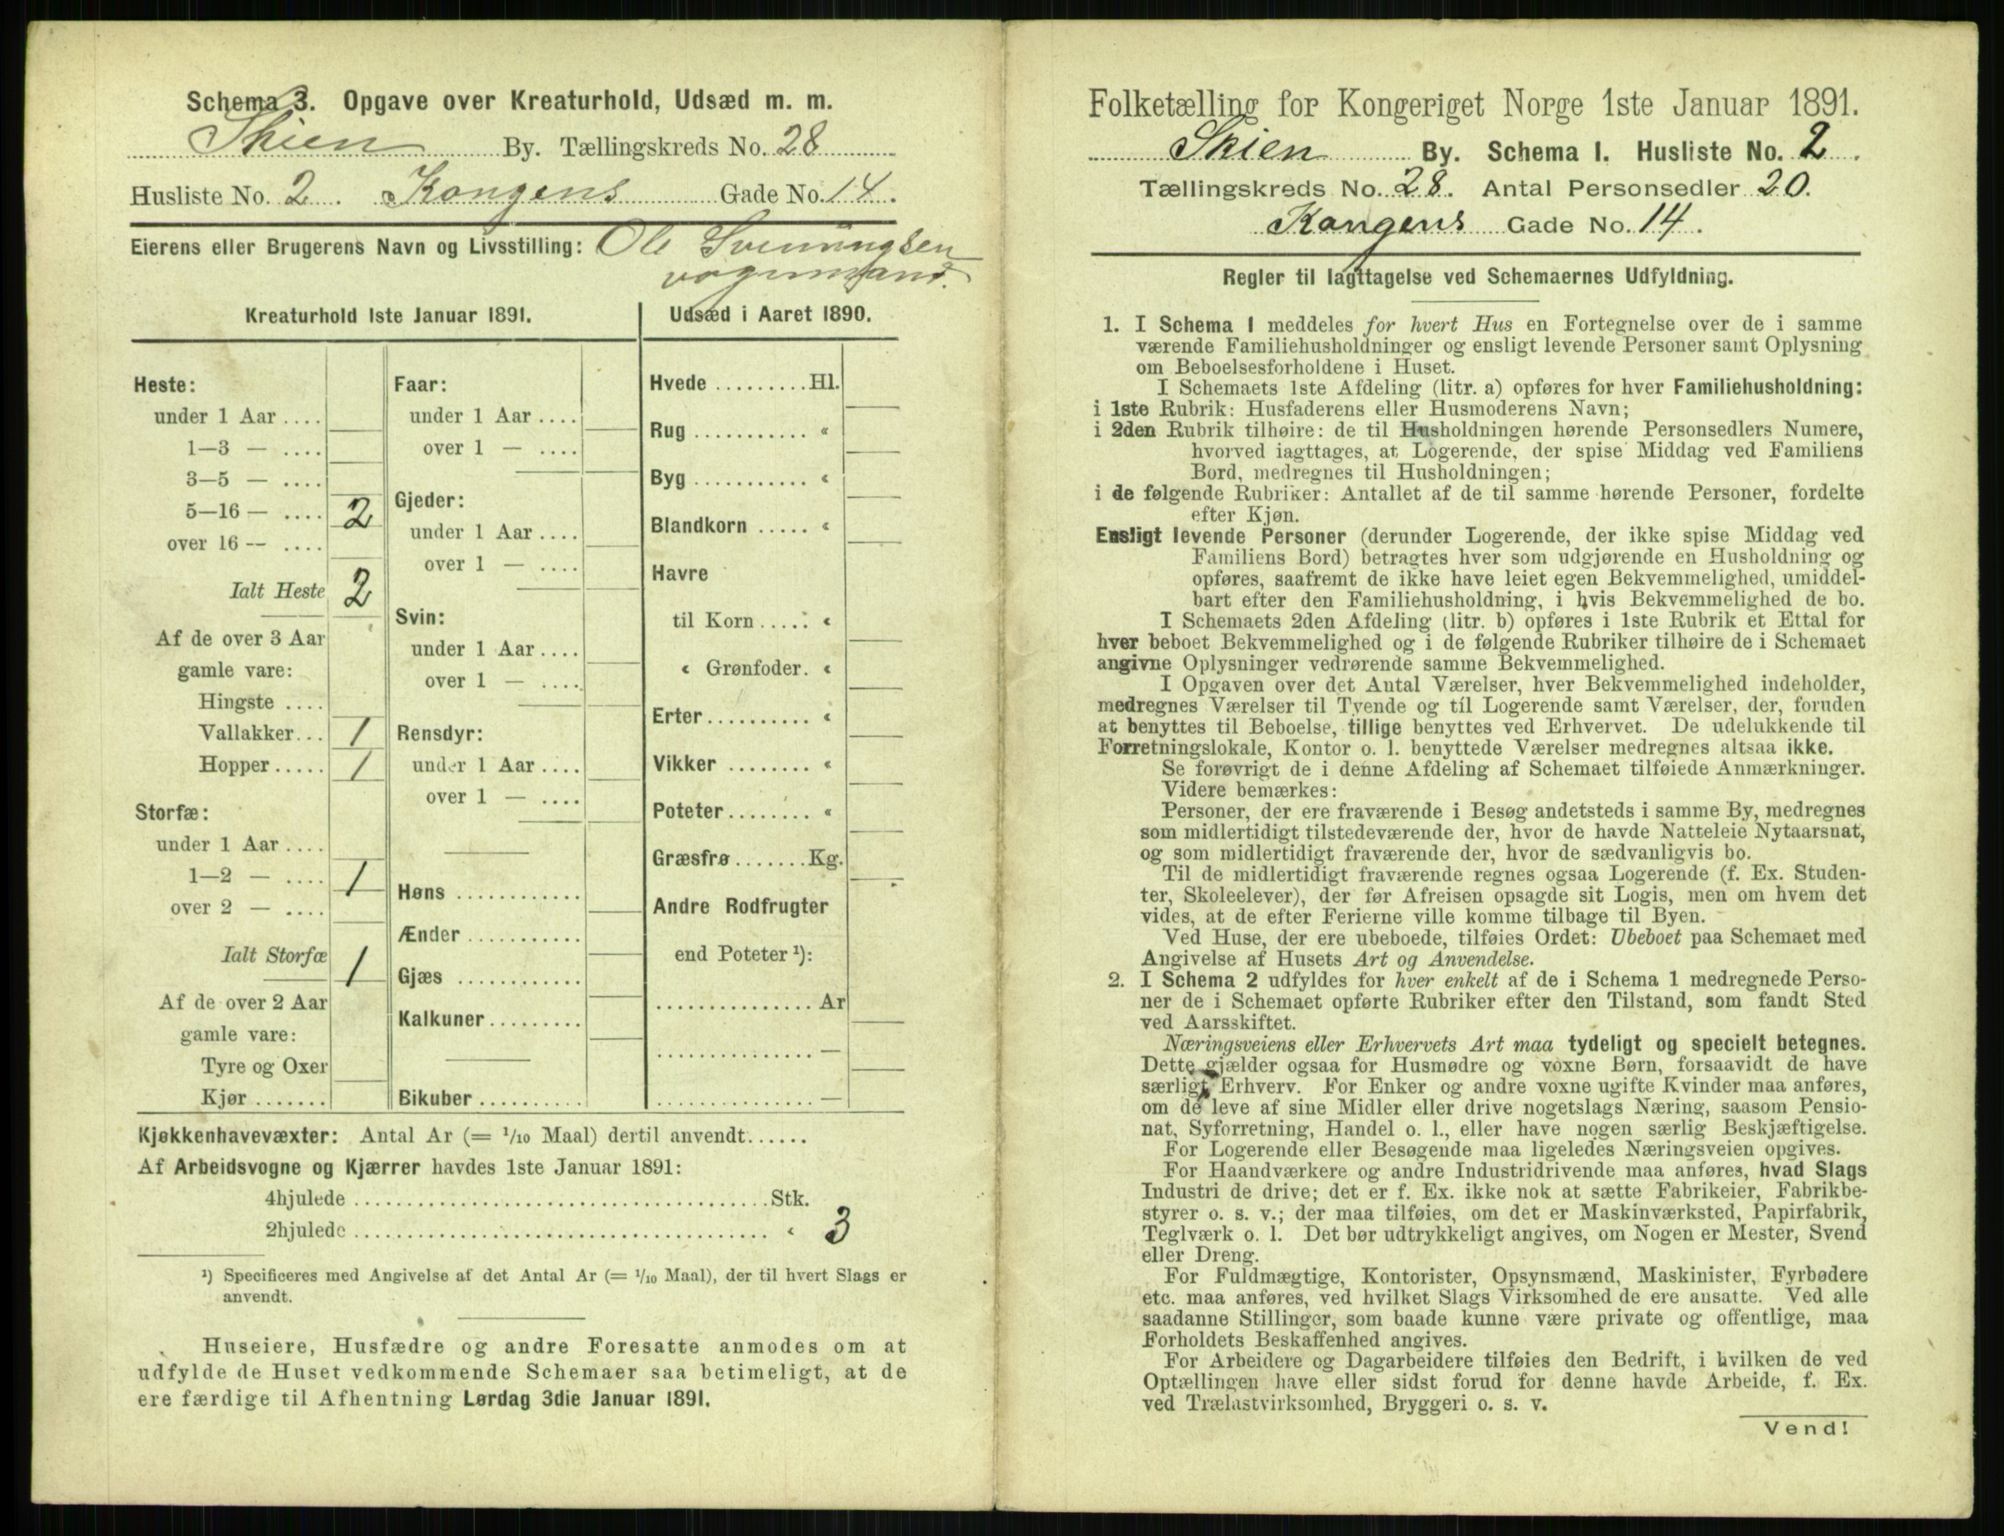 Schema 3. Opgave over Kreaturhold, Udsæd m. m.
Skien By. Tællingskreds No. 28
Husliste No. 2. Kongens Gade No. 14.
Eierens eller Brugerens Navn og Livsstilling: Ole Svenningsen
vognmand.
Kreaturhold 1ste Januar 1891.
Heste:
under 1 Aar ....
1—3 — ....
3—5 — ....
5—16 — .... 2
over 16 — ....
Ialt Heste 2
Af de over 3 Aar
gamle vare:
Hingste ....
Vallakker... 1
Hopper ..... 1
Storfæ:
under 1 Aar ....
1—2 — .... 1
over 2 — ....
Ialt Storfæ 1
Af de over 2 Aar
gamle vare:
Tyre og Oxer
Kjør .......
Faar:
under 1 Aar ....
over 1 — ....
Gjeder:
under 1 Aar ....
over 1 — ....
Svin:
under 1 Aar ....
over 1 — ....
Rensdyr:
under 1 Aar ....
over 1 — ....
Høns ............
Ænder ...........
Gjæs ............
Kalkuner.........
Bikuber ..........
Udsæd i Aaret 1890.
Hvede ......... Hl.
Rug ........... «
Byg ........... «
Blandkorn ..... «
Havre
til Korn ..... «
« Grønfoder. «
Erter.......... «
Vikker ........ «
Poteter........ «
Græsfrø ....... Kg.
Andre Rodfrugter
end Poteter ¹):
............... Ar
............... —
............... —
Kjøkkenhavevæxter: Antal Ar (= 1/10 Maal) dertil anvendt......
Af Arbeidsvogne og Kjærrer havdes 1ste Januar 1891:
4hjulede ........................................ Stk.
2hjulede ........................................ « 3
¹) Specificeres med Angivelse af det Antal Ar (= 1/10 Maal), der til hvert Slags er
anvendt.
Huseiere, Husfædre og andre Foresatte anmodes om at
udfylde de Huset vedkommende Schemaer saa betimeligt, at de
ere færdige til Afhentning Lørdag 3die Januar 1891.
Folketælling for Kongeriget Norge 1ste Januar 1891.
Skien By. Schema 1. Husliste No. 2.
Tællingskreds No. 28. Antal Personsedler 20.
Kongens Gade No. 14.
Regler til Iagttagelse ved Schemaernes Udfyldning.
1. I Schema 1 meddeles for hvert Hus en Fortegnelse over de i samme
værende Familiehusholdninger og ensligt levende Personer samt Oplysning
om Beboelsesforholdene i Huset.
I Schemaets 1ste Afdeling (litr. a) opføres for hver Familiehusholdning:
i 1ste Rubrik: Husfaderens eller Husmoderens Navn;
i 2den Rubrik tilhøire: de til Husholdningen hørende Personsedlers Numere,
hvorved iagttages, at Logerende, der spise Middag ved Familiens
Bord, medregnes til Husholdningen;
i de følgende Rubriker: Antallet af de til samme hørende Personer, fordelte
efter Kjøn.
Ensligt levende Personer (derunder Logerende, der ikke spise Middag ved
Familiens Bord) betragtes hver som udgjørende en Husholdning og
opføres, saafremt de ikke have leiet egen Bekvemmelighed, umiddel-
bart efter den Familiehusholdning, i hvis Bekvemmelighed de bo.
I Schemaets 2den Afdeling (litr. b) opføres i 1ste Rubrik et Ettal for
hver beboet Bekvemmelighed og i de følgende Rubriker tilhøire de i Schemaet
angivne Oplysninger vedrørende samme Bekvemmelighed.
I Opgaven over det Antal Værelser, hver Bekvemmelighed indeholder,
medregnes Værelser til Tyende og til Logerende samt Værelser, der, foruden
at benyttes til Beboelse, tillige benyttes ved Erhvervet. De udelukkende til
Forretningslokale, Kontor o. l. benyttede Værelser medregnes altsaa ikke.
Se forøvrigt de i denne Afdeling af Schemaet tilføiede Anmærkninger.
Videre bemærkes:
Personer, der ere fraværende i Besøg andetsteds i samme By, medregnes
som midlertidigt tilstedeværende der, hvor de havde Natteleie Nytaarsnat,
og som midlertidigt fraværende der, hvor de sædvanligvis bo.
Til de midlertidigt fraværende regnes ogsaa Logerende (f. Ex. Studen-
ter, Skoleelever), der før Afreisen opsagde sit Logis, men om hvem det
vides, at de efter Ferierne ville komme tilbage til Byen.
Ved Huse, der ere ubeboede, tilføies Ordet: Ubeboet paa Schemaet med
Angivelse af Husets Art og Anvendelse.
2. I Schema 2 udfyldes for hver enkelt af de i Schema 1 medregnede Perso-
ner de i Schemaet opførte Rubriker efter den Tilstand, som fandt Sted
ved Aarsskiftet.
Næringsveiens eller Erhvervets Art maa tydeligt og specielt betegnes.
Dette gjælder ogsaa for Husmødre og voxne Børn, forsaavidt de have
særligt Erhverv. For Enker og andre voxne ugifte Kvinder maa anføres,
om de leve af sine Midler eller drive nogetslags Næring, saasom Pensio-
nat, Syforretning, Handel o. l., eller have nogen særlig Beskjæftigelse.
For Logerende eller Besøgende maa ligeledes Næringsveien opgives.
For Haandværkere og andre Industridrivende maa anføres, hvad Slags
Industri de drive; det er f. Ex. ikke nok at sætte Fabrikeier, Fabrikbe-
styrer o. s. v.; der maa tilføies, om det er Maskinværksted, Papirfabrik,
Teglværk o. l. Det bør udtrykkeligt angives, om Nogen er Mester, Svend
eller Dreng.
For Fuldmægtige, Kontorister, Opsynsmænd, Maskinister, Fyrbødere
etc. maa anføres, ved hvilket Slags Virksomhed de ere ansatte. Ved alle
saadanne Stillinger, som baade kunne være private og offentlige, maa
Forholdets Beskaffenhed angives.
For Arbeidere og Dagarbeidere tilføies den Bedrift, i hvilken de ved
Optællingen have eller sidst forud for denne havde Arbeide, f. Ex.
ved Trælastvirksomhed, Bryggeri o. s. v.
Vend!